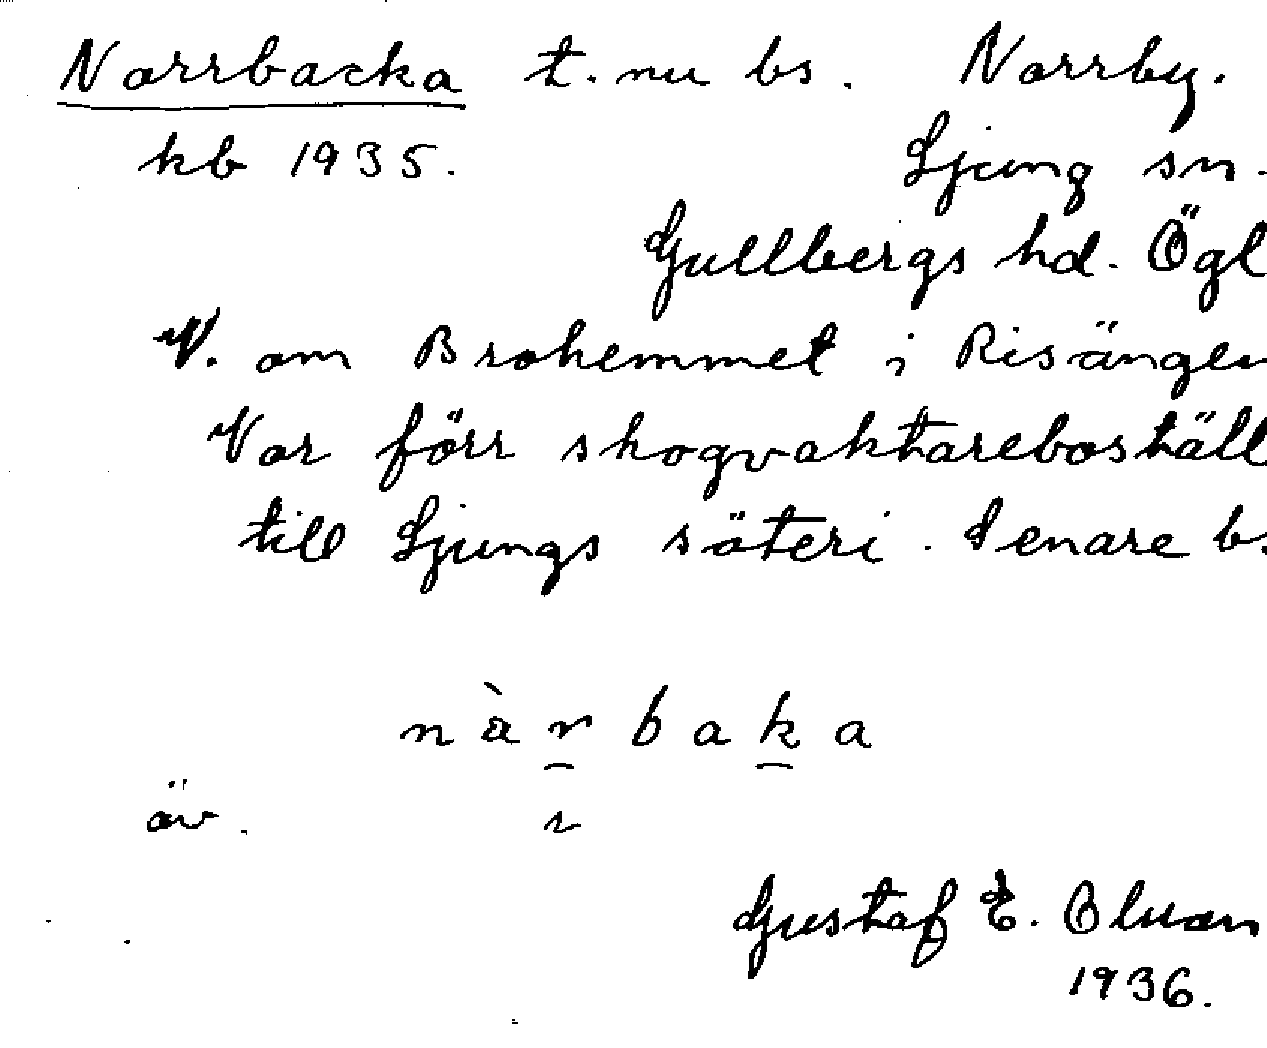 Norrbacka t. nu bs. Norrby.
kb 1935. Ljung sn.
Gullbergs hd. Ögl
V. om Brohemmet i Risängen
Var förr skogvaktareboställ
till Ljungs säteri. Senare bs
nàrbaka
äv. r
Gustaf E.
1936.